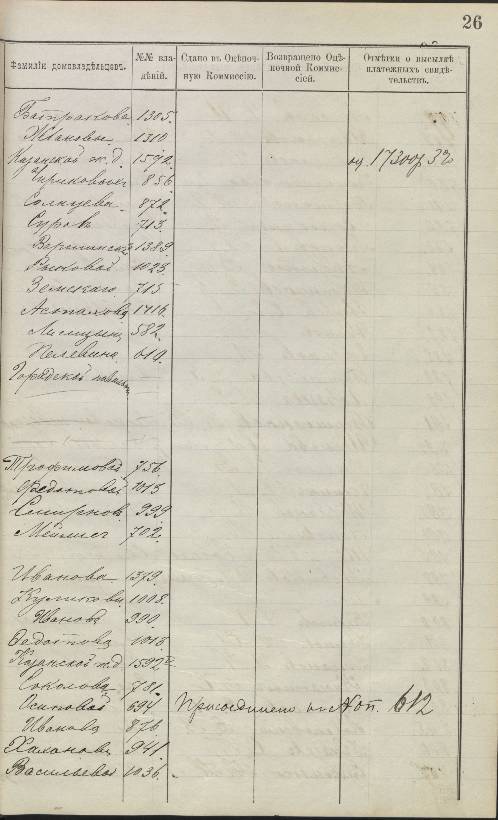 26
Фамиліи домовладѣльцевъ. №№ владѣній. Сдано въ Оцѣночную Коммисію. Возвращено Оцѣночной Коммиссіей. Отмѣтки о высылкѣ платежныхъ свидѣтельствъ.
Батракова 1305.
Жданович 1310
Казанской ж.д. 1592. 17300р 32
856.
Солнцева 872.
Суровъ 713.
1389.
Рыковой 1023.
Земскаго 715
1716.
Лисицынъ 582.
Пелевина 610.
Городской
Трофимовой 756.
Федотовой 1013
Смирновъ 999
702.
Иванова 1379.
Куликовъ 1008.
Ивановъ 990.
Федотова 1013.
Казанской ж.д 1592
Соколова 731.
Осиповой 694 Присоединено къ № оп. 612
Иванова 876.
941.
Васильевой 1036.